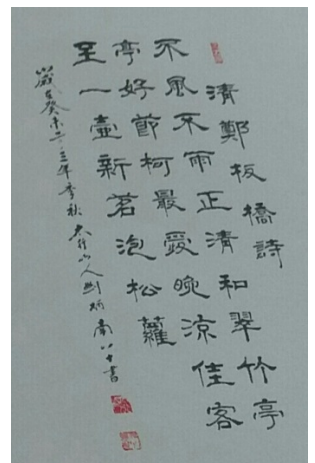 清鄭板橋詩
不風不雨正清和翠竹亭
亭好節柯最愛晚涼佳客
至一壺新茗泡松蘿
歲在癸未二〇〇三年季秋太行山人劉炳南八十書